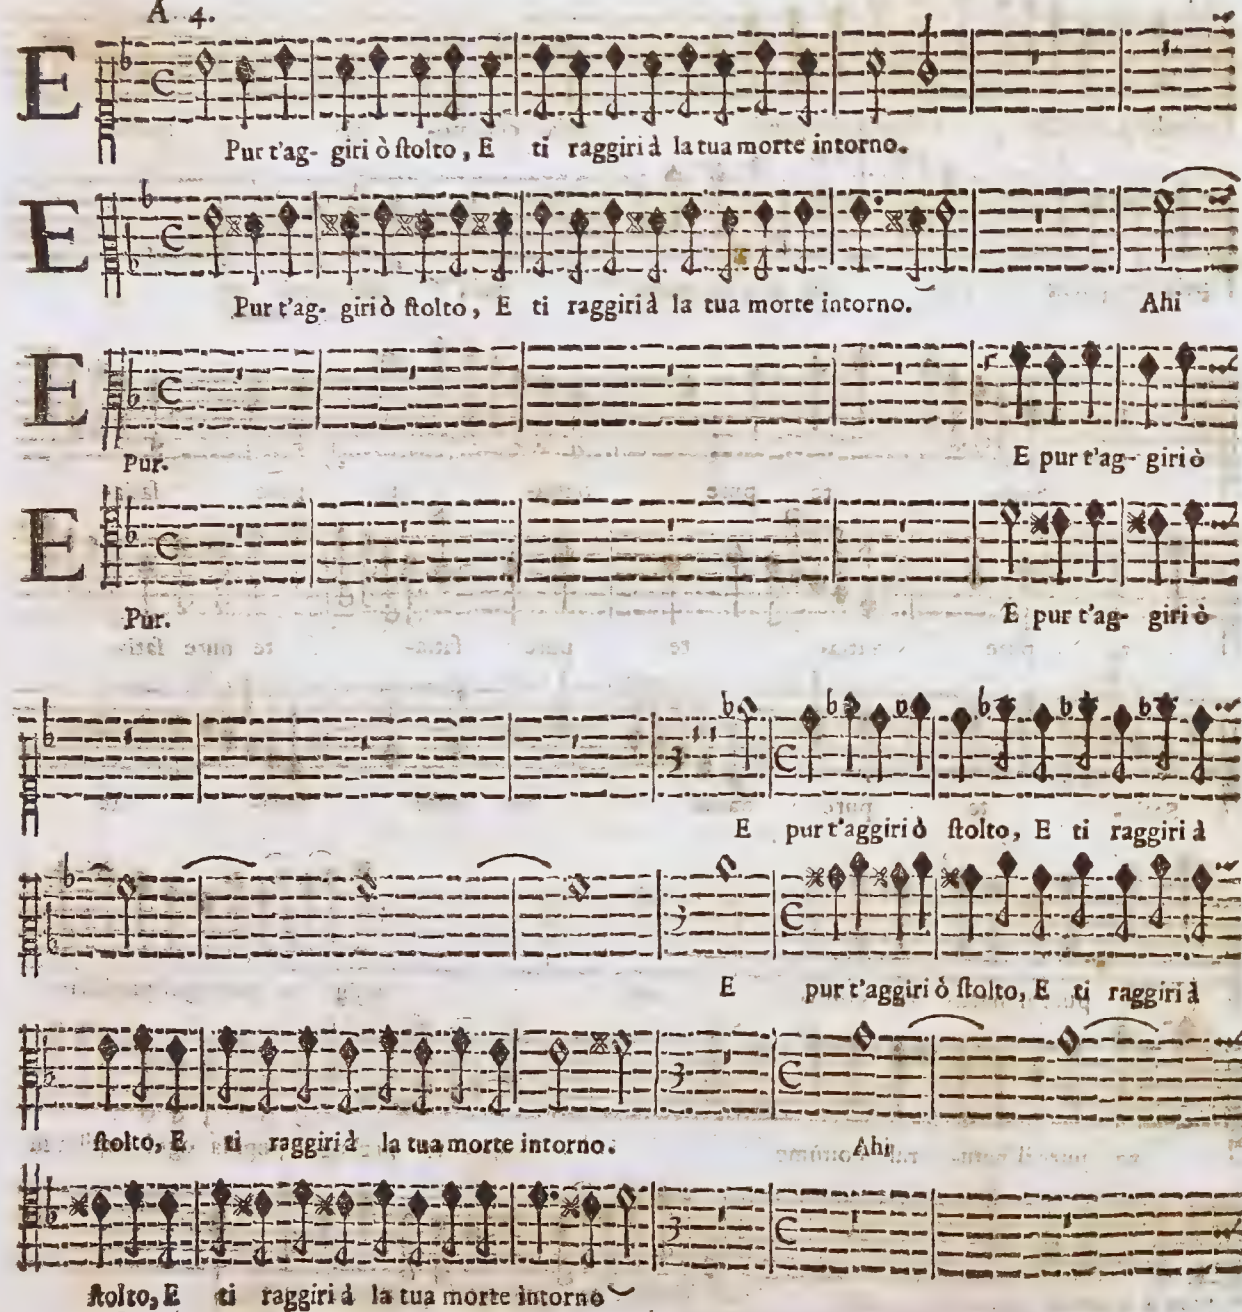 A 4.
E Pur t'ag- giri ò ſtolto, E ti raggiri à la tua morte intorno.
E Pur t'ag- giri ò ſtolto, E ti raggiri à la tua morte intorno. Ahi
E Pur. E pur t'ag- giri ò
E Pur. E pur t'ag- giri ò
E pur t'aggiri ò ſtolto, E ti raggiri à
E pur t'aggiri ò ſtolto, E ti raggiri à
ſtolto, E ti raggiri à la tua morte intorno. Ahi
ſtolto, E ti raggiri à la tua morte intorno